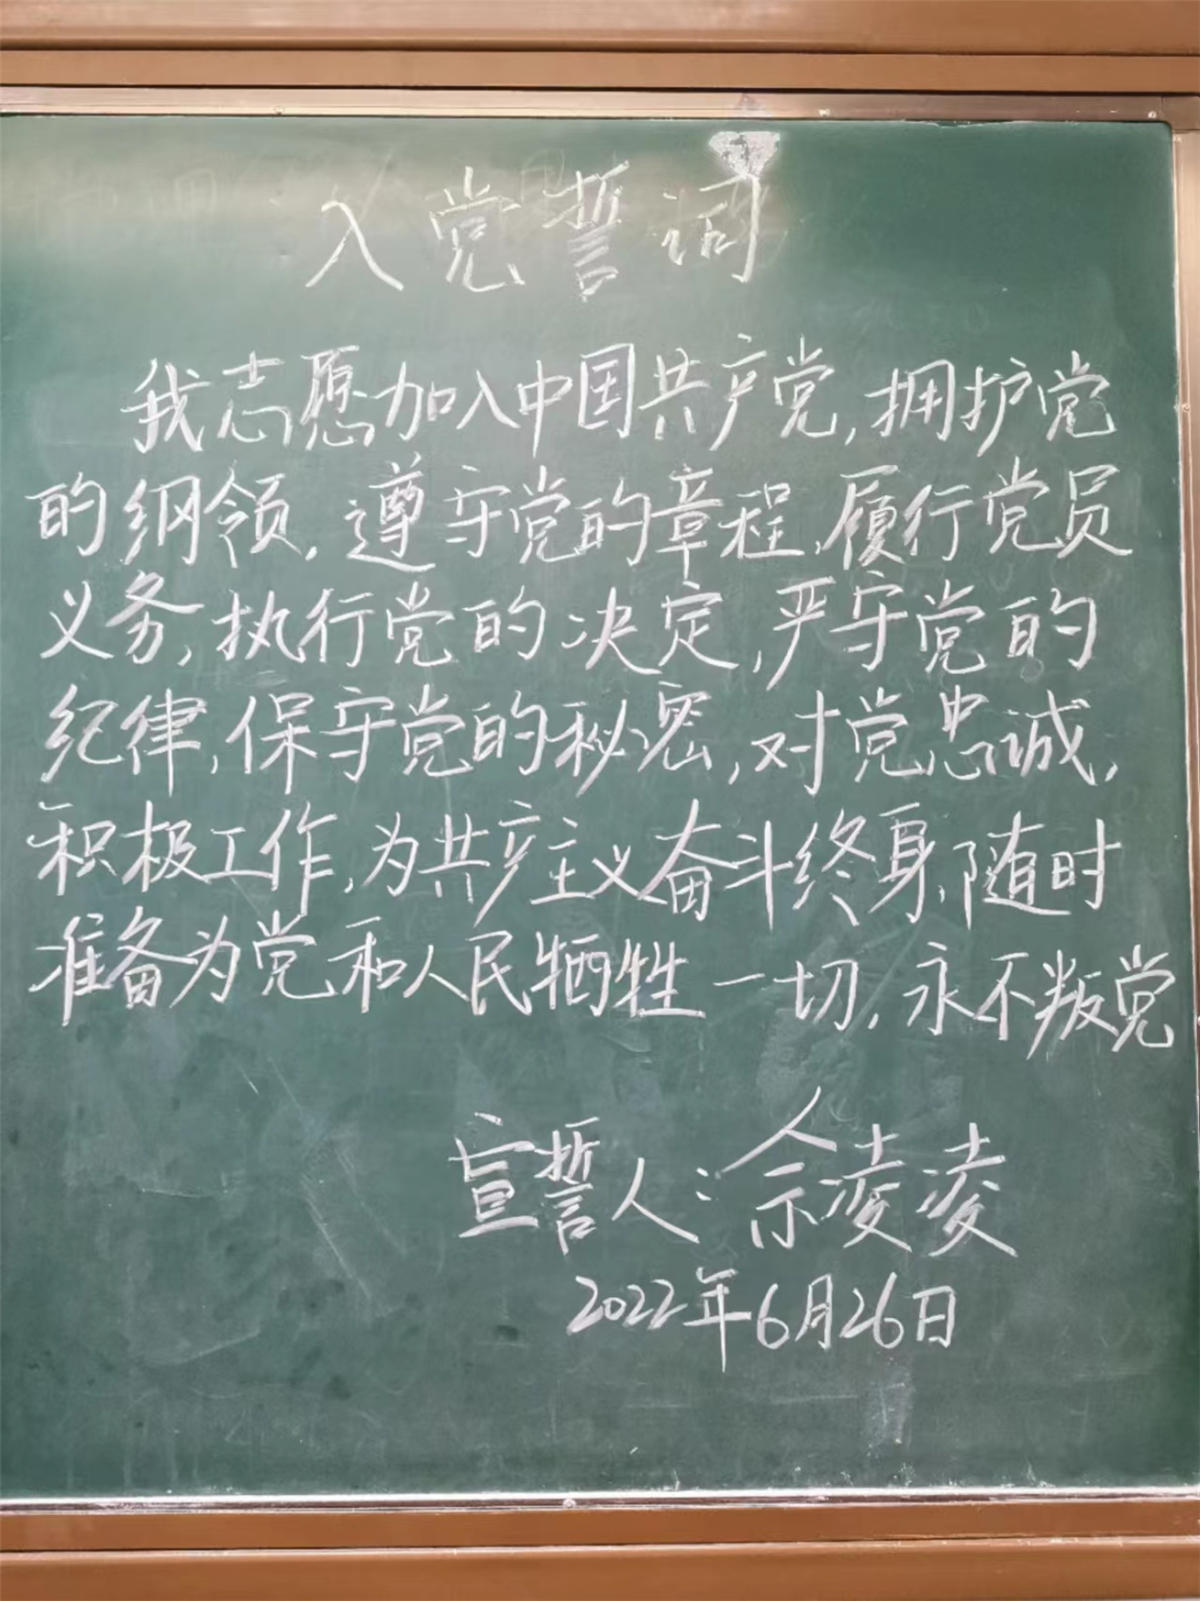 入党誓词
我志愿加入中国共产党,拥护党
的纲领,遵守党的章程,履行党员
义务,执行党的决定,严守党的
纪律,保守党的秘密,对党忠诚,
积极工作,为共产主义奋斗终身,随时
准备为党和人民牺牲一切,永不叛党
宣誓人:佘凌凌
2022年6月26日